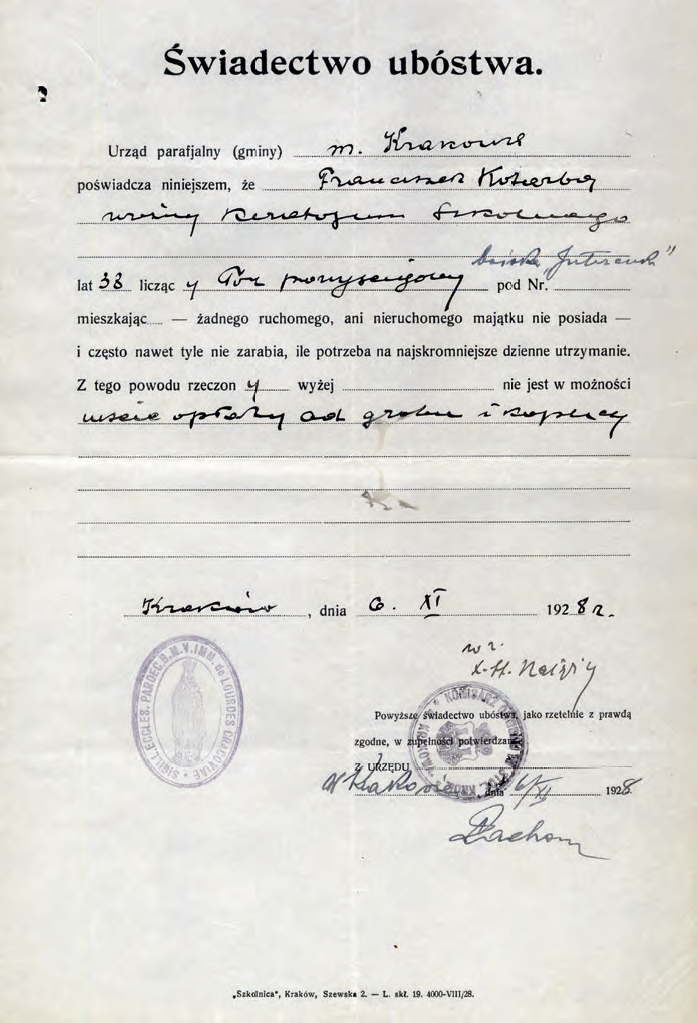 Świadectwo ubóstwa.
Urząd parafjalny (gminy) m. Krakowa
poświadcza niniejszem, że Franciszek
woźny Kuratorjum Szkolnego
boiska „Jutrzenki”
lat 33 licząc y Tor pod Nr.
mieszkając — żadnego ruchomego, ani nieruchomego majątku nie posiada —
i często nawet tyle nie zarabia, ile potrzeba na najskromniejsze dzienne utrzymanie.
Z tego powodu rzeczon y wyżej nie jest w możności
uiścić opłaty od grobu i kaplicy
Kraków, dnia 6. XI 1928 r.
w z.
SIGILL. ECCLES. PAROEC. B. M. V. IMM. de LOURDES CRACOVIAE
Powyższe świadectwo ubóstwa, jako rzetelnie z prawdą
zgodne, w zupełności potwierdzam
Z URZĘDU
W Krakowie, dnia 6/XI 1928.
„Szkolnica”, Kraków, Szewska 2. — L. skł. 19. 4000-VIII/28.